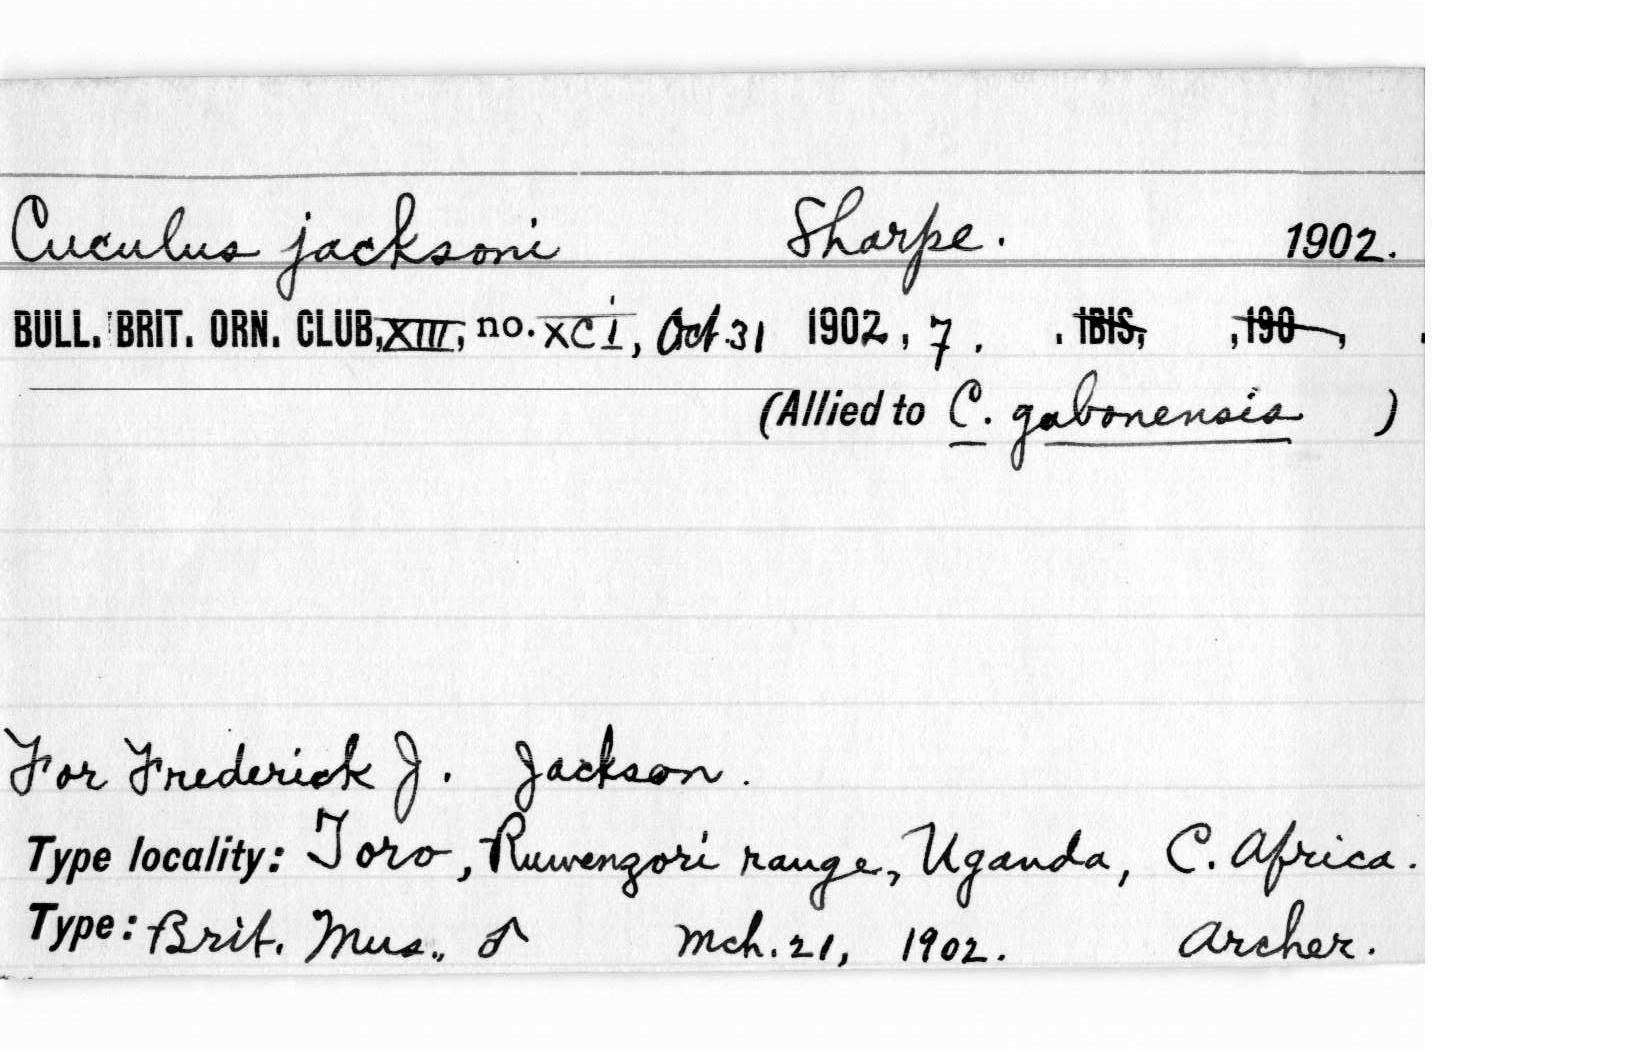 Cuculus jacksoni Sharpe. 1902.
BULL. BRIT. ORN. CLUB, XIII, no. XCI, Oct. 31 1902, 7. . IBIS, ,190 , .
(Allied to C. gabonensis )
For Frederick J. Jackson.
Type locality: Toro, Ruwenzori range, Uganda, C. Africa.
Type: Brit. Mus., ♂ Mch. 21, 1902. Archer.